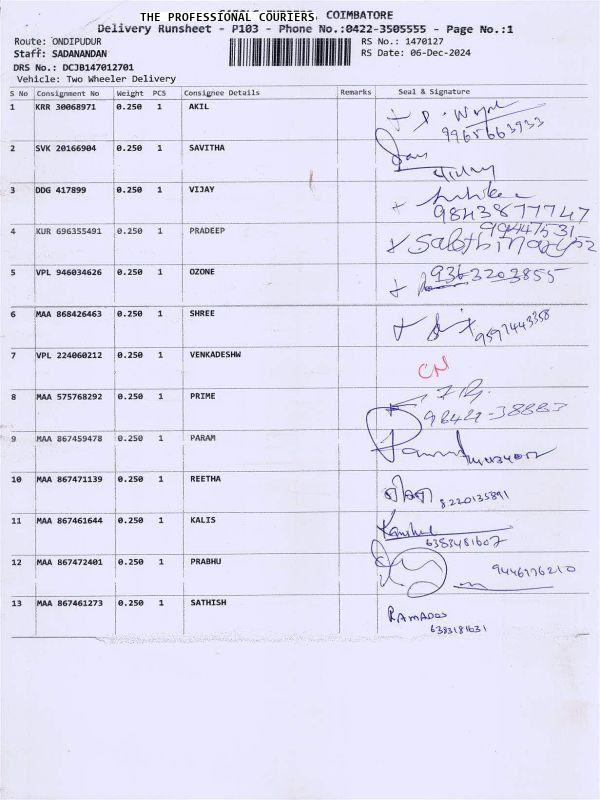 THE PROFESSIONAL COURIERS, COIMBATORE
Delivery Runsheet - P103 - Phone No.:0422-3505555 - Page No.:1
Route: ONDIPUDUR
RS No.: 1470127
Staff: SADANANDAN
RS Date: 06-Dec-2024
DRS No.: DCJB147012701
Vehicle: Two Wheeler Delivery
S No Consignment No Weight PCS Consignee Details Remarks Seal & Signature
1 KRR 30068971 0.250 1 AKIL
9965663933
2 SVK 20166904 0.250 1 SAVITHA
3 DDG 417899 0.250 1 VIJAY
9843877747
4 KUR 696355491 0.250 1 PRADEEP
5 VPL 946034626 0.250 1 OZONE
9363203855
6 MAA 868426463 0.250 1 SHREE
9597443358
7 VPL 224060212 0.250 1 VENKADESHW
CN
8 MAA 575768292 0.250 1 PRIME
9 MAA 867459478 0.250 1 PARAM
10 MAA 867471139 0.250 1 REETHA
8220135891
11 MAA 867461644 0.250 1 KALIS
6383481607
12 MAA 867472401 0.250 1 PRABHU
9446776210
13 MAA 867461273 0.250 1 SATHISH
RAMADOS
6383181631